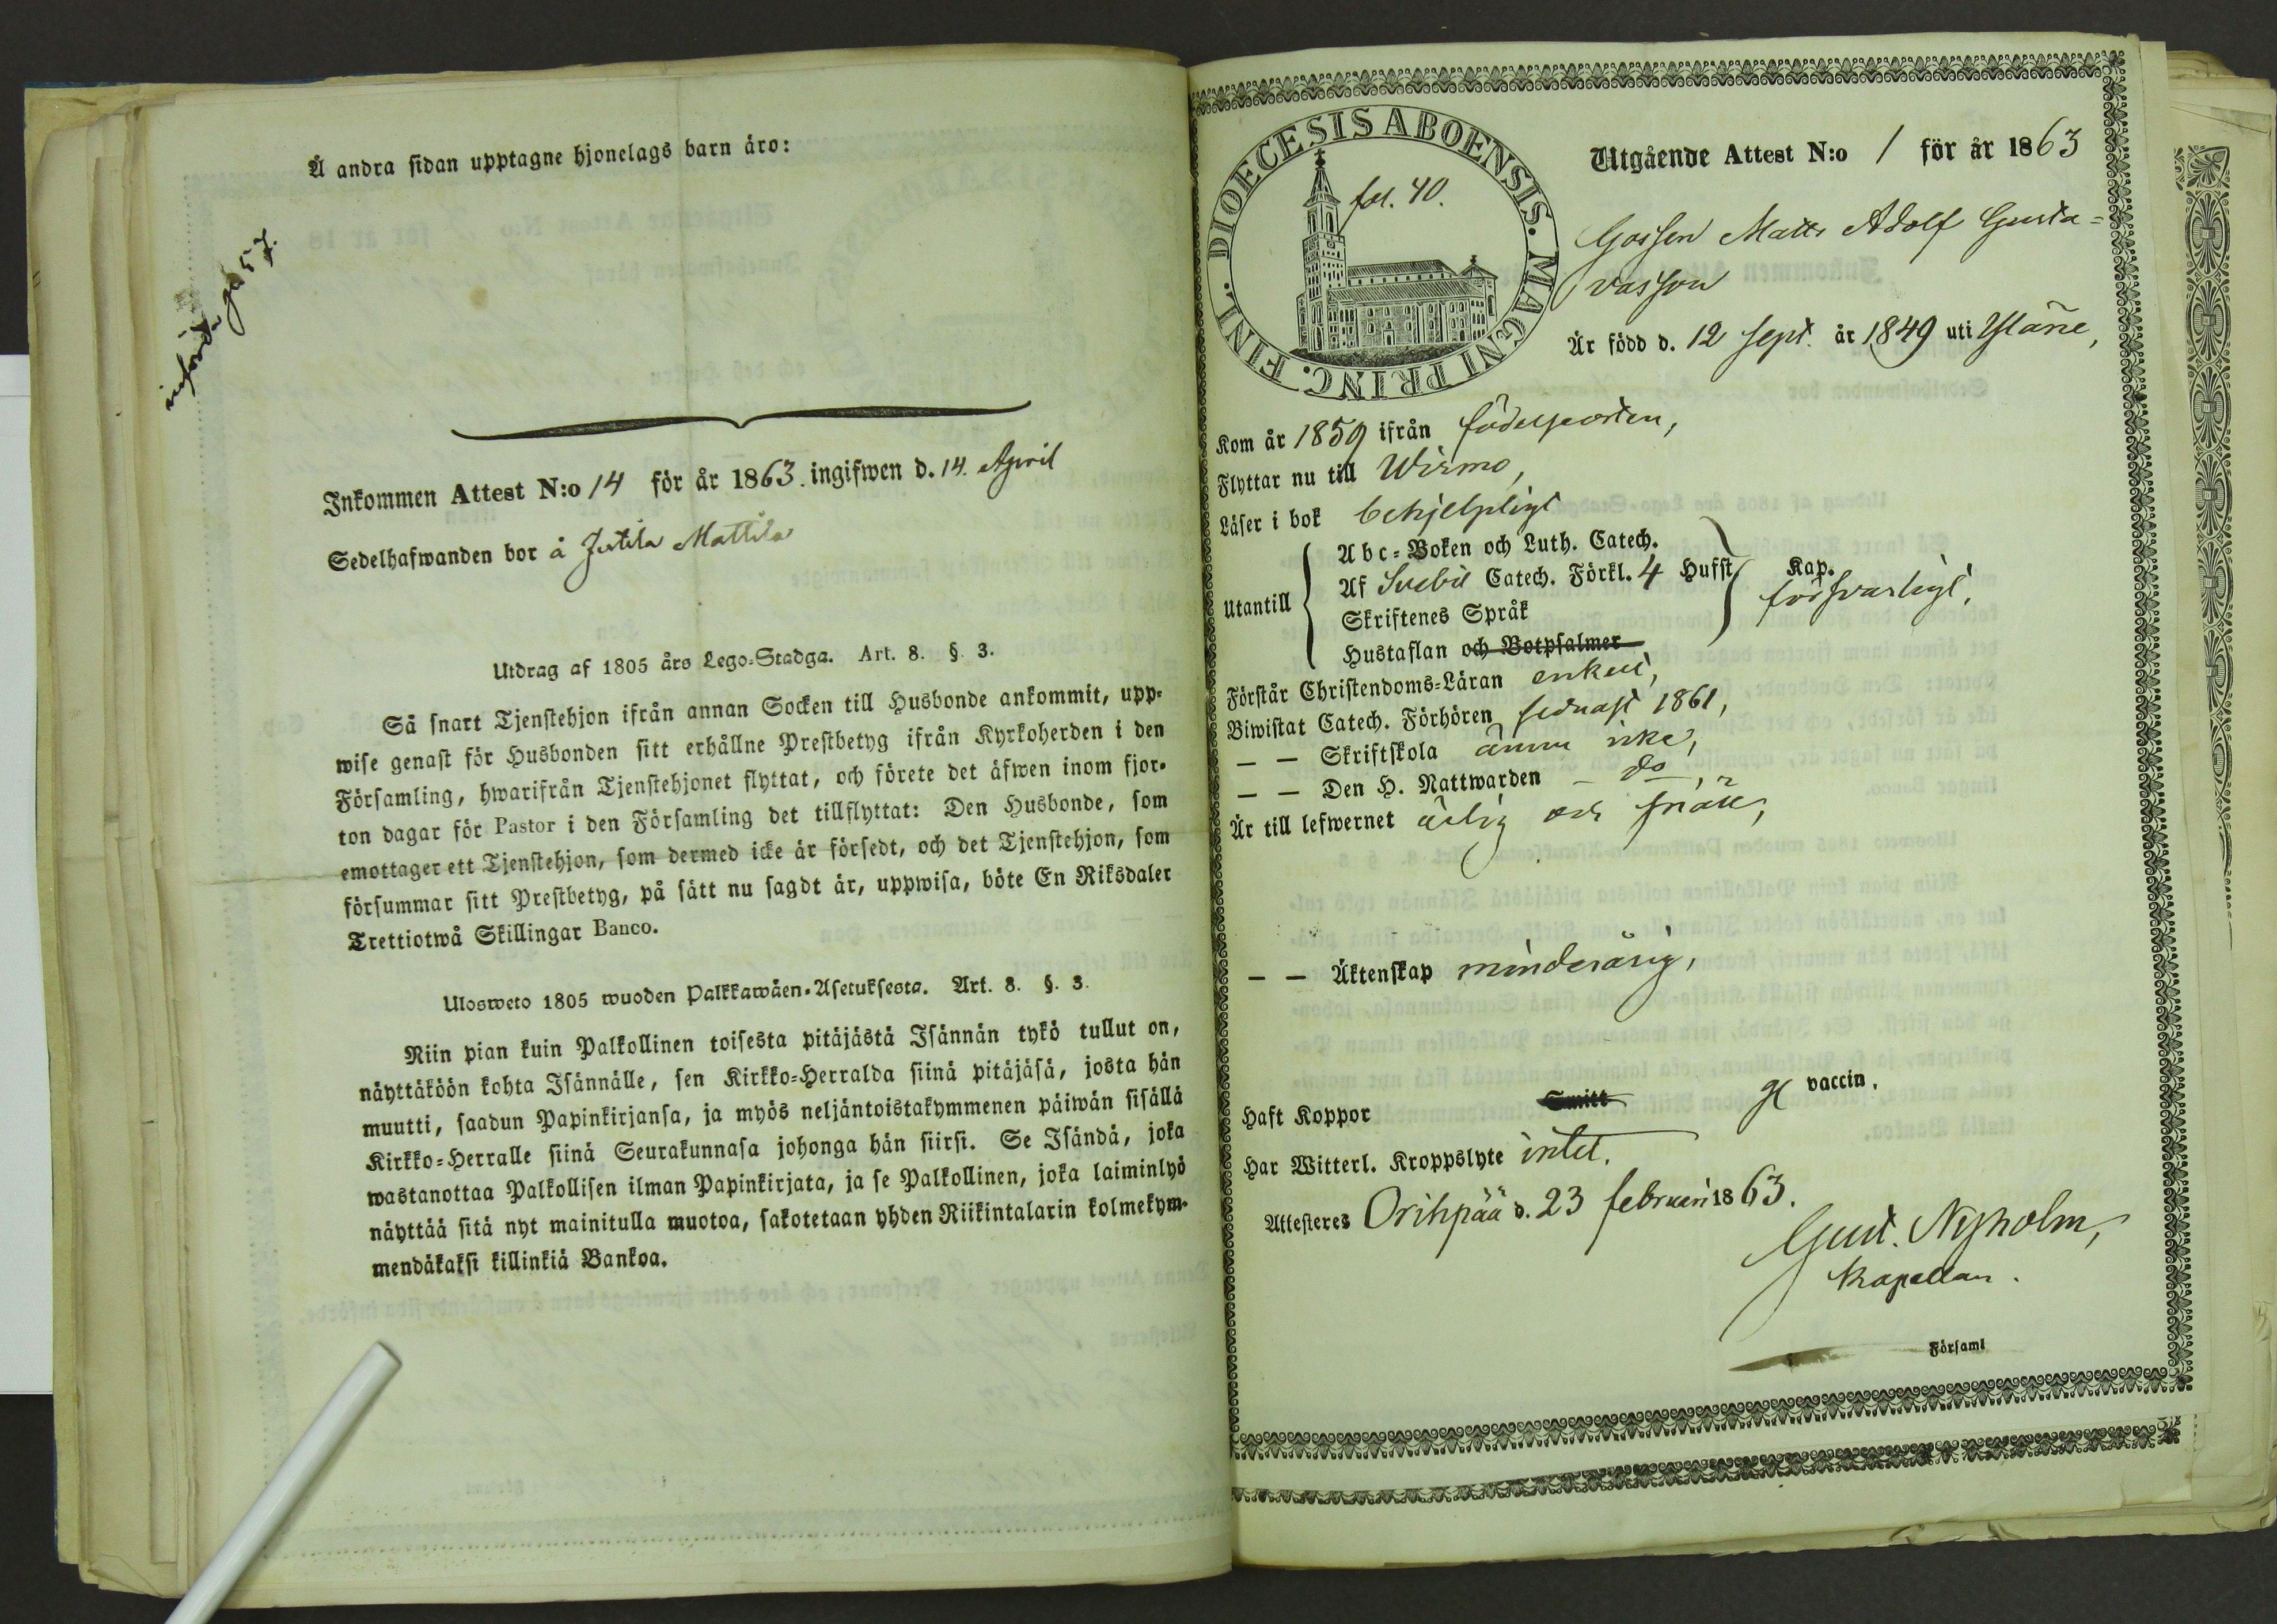 Å andra sidan upptagne hjonelags barn äro:
införd pag 57.
Inkommen Attest N:o 14 för år 1863. ingifwen d. 14. April
Sedelhafwanden bor å Jutila Mattila
Utdrag af 1805 års Lego-Stadga. Art. 8. §. 3.
Så snart Tjenstehjon ifrån annan Socken till Husbonde ankommit, upp-
wise genast för Husbonden sitt erhållne Prestbetyg ifrån Kyrkoherden i den
Församling, hwarifrån Tjenstehjonet flyttat, och förete det äfwen inom fjor-
ton dagar för Pastor i den Församling det tillflyttat: Den Husbonde, som
emottager ett Tjenstehjon, som dermed icke är försedt, och det Tjenstehjon, som
försummar sitt Prestbetyg, på sätt nu sagdt är, uppwisa, böte En Riksdaler
Trettiotwå Skillingar Banco.
Ulosweto 1805 wuoden Palkkawäen-Asetuksesta. Art. 8. §. 3.
Niin pian kuin Palkollinen toisesta pitäjästä Isännän tykö tullut on,
näyttäköön kohta Isännälle, sen Kirkko-Herralda siinä pitäjäsä, josta hän
muutti, saadun Papinkirjansa, ja myös neljäntoistakymmenen päiwän sisällä
Kirkko-Herralle siinä Seurakunnasa johonga hän siirsi. Se Isändä, joka
wastanottaa Palkollisen ilman Papinkirjata, ja se Palkollinen, joka laiminlyö
näyttää sitä nyt mainitulla muotoa, sakotetaan yhden Riikintalarin kolmekym-
mendäkaksi killinkiä Bankoa.
DIOECESIS ABOENSIS. MAGNI PRINC. FINL.
fol. 40.
Utgående Attest N:o 1 för år 1863
Gossen Matts Adolf Gusta-
vasson
Är född d. 12 Sept. år 1849 uti Yläne,
Kom år 1859 ifrån födelseorten,
Flyttar nu till Wirmo,
Läser i bok behjelpligt
Utantill
Abc-Boken och Luth. Catech.
Af Svebil Catech. Förkl. 4 Hufst. Kap.
Skriftenes Språk
försvarligt,
Hustaflan och Botpsalmer
Förstår Christendoms-Läran enkelt,
Biwistat Catech. Förhören sednast 1861,
— — Skriftskola ännu icke,
— — Den H. Nattwarden – do,
Är till lefwernet ärlig och frälle,
— — Äktenskap minderårig,
Haft Koppor Smitt gl vaccin.
Har Witterl. Kroppslyte intet.
Attesteres Orihpää d. 23 februari 1863.
Gust. Nyholm,
Kapellan.
Församl